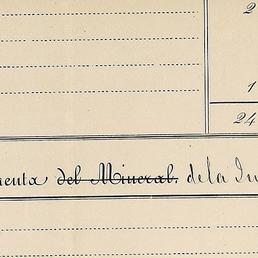 2
1
24
uenta ~~del Mineral.~~ de la In